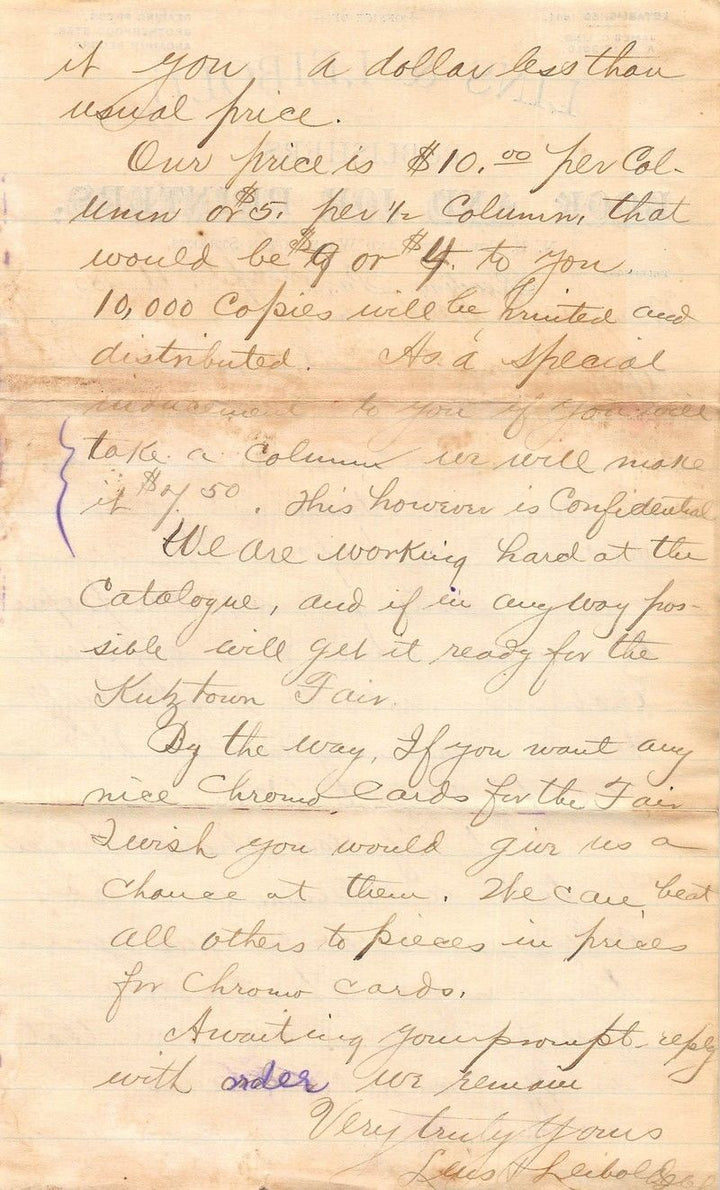 it you a dollar less than
usual price.
Our price is $10.00 per Col-
umn or $5. per 1/2 Column, that
would be $9 or $4. to you.
10,000 Copies will be printed and
distributed. As a special
inducement to you if you will
take a column we will make
it $7.50. This however is Confidential
We are working hard at the
Catalogue, and if in any way pos-
sible will get it ready for the
Kutztown Fair.
By the way, If you want any
nice Chromo Cards for the Fair
I wish you would give us a
chance at them. We can beat
all others to pieces in prices
for Chromo cards.
Awaiting your prompt reply
with order we remain
Very truly Yours
Lins & Leibold